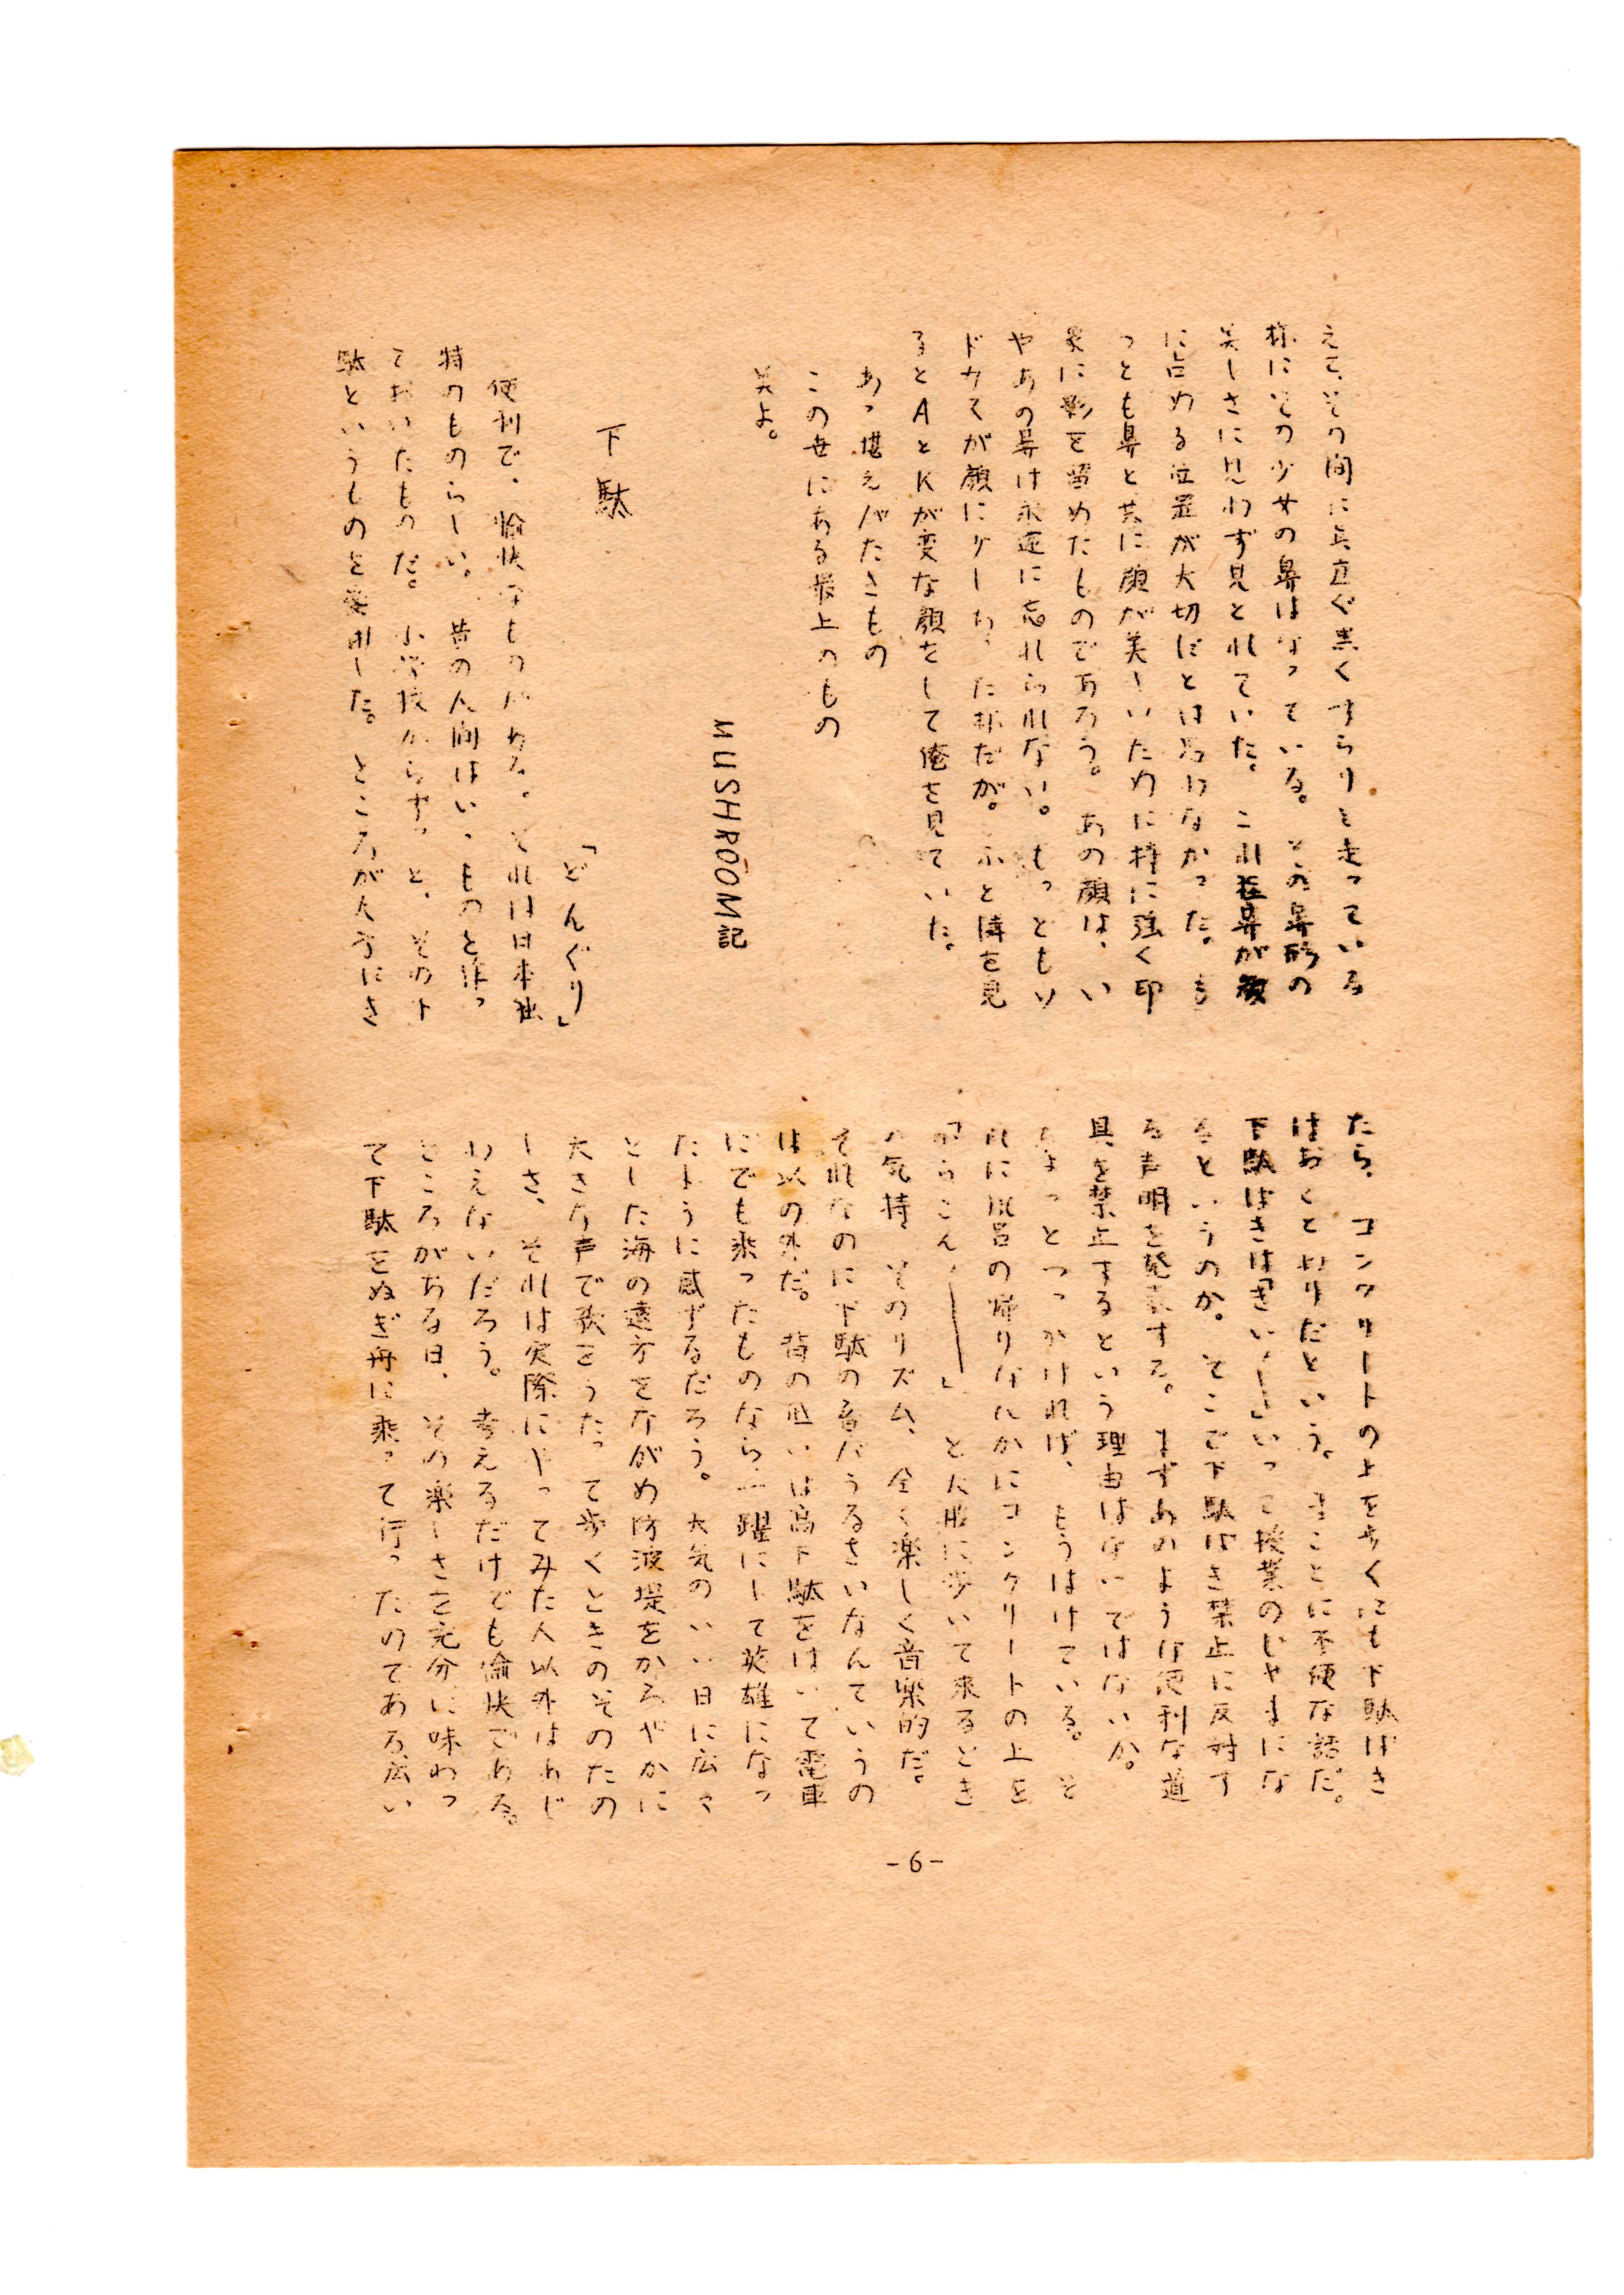 えて、その間に真直ぐ黒くすらりと走っている
様にその少女の鼻はなっている。その鼻形の
美しさに思わず見とれていた。これ程鼻が顔
に占める位置が大切だとは思わなかった。も
っとも鼻と共に顔が美しいために特に強く印
象に影を留めたものであろう。あの顔は、い
やあの鼻は永遠に忘れられない。もっともソ
ドカスが顔に少しあった様だが。ふと隣を見
るとAとKが変な顔をして俺を見ていた。
あゝ堪えがたきもの
この世にある最上のもの
美よ。
MUSHROOM記
下駄
「どんぐり」
便利で、愉快なものがある。それは日本独
特のものらしい。昔の人間はいゝものと作っ
ておいたものだ。小学校からずっと、その下
駄というものを愛用した。ところが大学にき
たら、コンクリートの上を歩くにも下駄ばき
はおことわりだという。まことに不便な話だ。
下駄ばきは「ぎいーー」いって授業のじゃまにな
るというのか。そこで下駄ばき禁止に反対す
る声明を発表する。まずあのような便利な道
具を禁止するという理由はないではないか。
ちょっとつっかければ、もうはけている。そ
れに風呂の帰りなんかにコンクリートの上を
「からこんーー」と大股に歩いて来るとき
の気持、そのリズム、全く楽しく音楽的だ。
それなのに下駄の音がうるさいなんていうの
は以の外だ。背の低いは高下駄をはいて電車
にでも乗ったものなら一躍にして英雄になっ
たように感ずるだろう。大気のいゝ日に広々
とした海の遠方をながめ防波堤をかろやかに
大きな声で歌をうたって歩くときのそのたの
しさ、それは実際にやってみた人以外はあじ
わえないだろう。考えるだけでも愉快である。
ところがある日、その楽しさを充分に味わっ
て下駄をぬぎ舟に乗って行ったのである広い
-6-